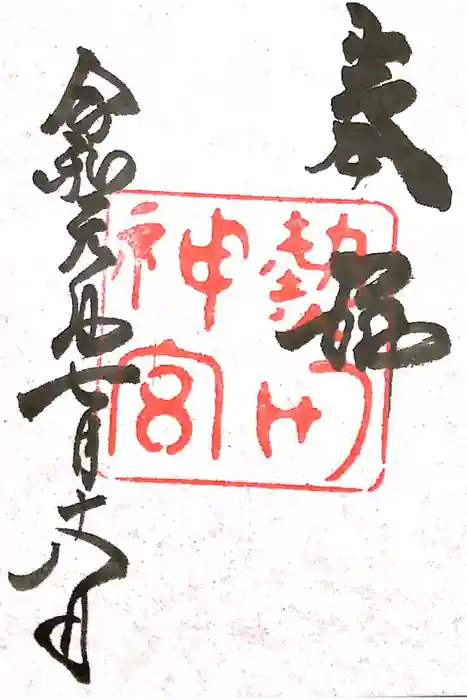 奉拝
熱田
神宮
令和元年七月十八日